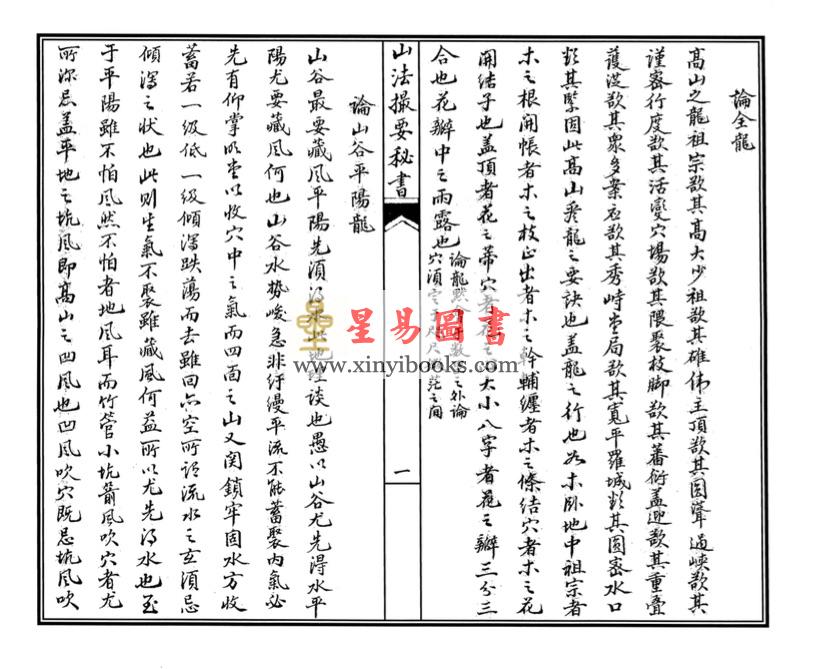 論全龍
高山之龍祖宗欲其高大少祖欲其雄偉主頂欲其圓聳過峽欲其
謹密行度欲其活變穴場欲其隈聚枝脚欲其蕃衍蓋迎欲其重疊
護從欲其眾多案應欲其秀峙堂局欲其寬平羅城欲其圓密水口
欲其緊固此高山尋龍之要訣也蓋龍之行也如木卧地中祖宗者
木之根開帳者木之枝正出者木之幹輔纏者木之條結穴者木之花
開結子也蓋頂者花之蒂穴者花之 大小八字者花之瓣三分三
合也花瓣中之雨露也
論龍 數 之外論
穴須定于咫尺 茫之间
山法撮要秘書
一
論山谷平陽龍
山谷最要藏風平陽先須得水此地理談也愚以山谷尤先得水平
陽尤要藏風何也山谷水勢峻急非紆縵平流不能蓄聚内氣必
先有仰掌明堂以收穴中之氣而四面之山又関鎖牢固水方收
蓄若一級低一級傾瀉跌蕩而去雖回亦空所謂流水之玄須忌
傾瀉之状也此則生氣不聚雖藏風何益所以尤先得水也至
于平陽雖不怕風然不怕者地風耳而竹管小坑箭風吹穴者尤
所深忌盖平地之坑風即高山之凹風也凹風吹穴既忌坑風吹
星易圖書
www.xinyibooks.com